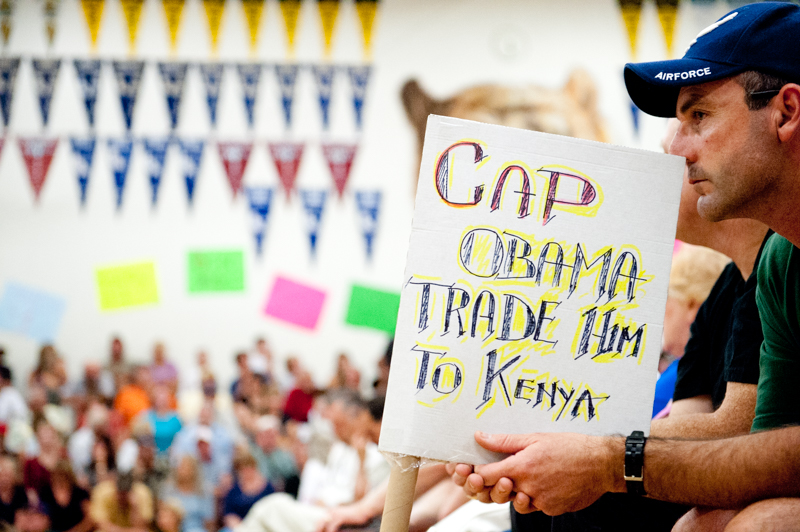 AIRFORCE
CAP
OBAMA
TRADE HIM
TO KENYA